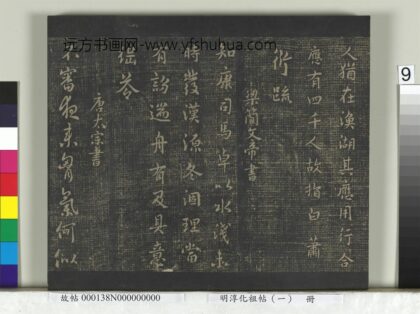 远方书画网 www.yfshuhua.com
人猶在溪湖其應用行合
應有四千人故指白蕭
衍疏
梁簡文帝書
知廉司馬卓以水淺未
時發漢源冬涸理當
有訪遄舟有及具意
綱答
唐太宗書
不審夜來勞氣何似
9
故帖 000138N000000000
明淳化祖帖 (一) 冊